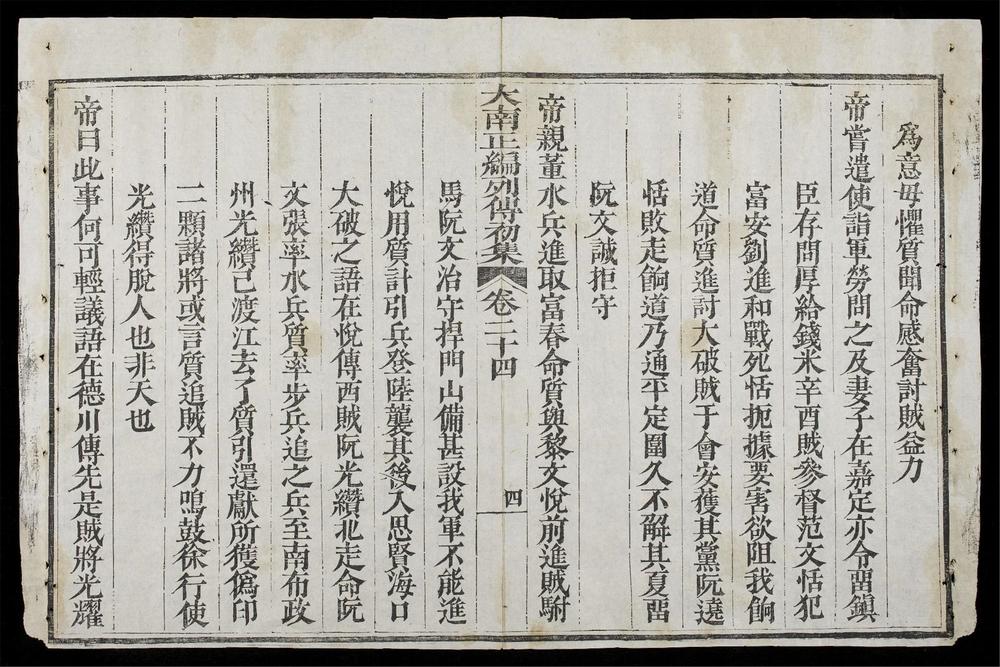 爲意毋懼質聞命感奮討賊益力
帝嘗遣使詣軍勞問之及妻子在嘉定亦令畱鎮
臣存問厚給錢米辛酉賊參督范文恬犯
富安劉進和戰死恬扼據要害欲阻我餉
道命質進討大破賊于會安獲其黨阮遶
恬敗走餉道乃通平定圍久不解其夏畱
阮文誠拒守
帝親董水兵進取富春命質與黎文悅前進賊駙
大南正編列傳初集 卷二十四 四
馬阮文治守捍門山備甚設我軍不能進
悅用質計引兵登陸襲其後入思賢海口
大破之語在悅傳西賊阮光纘北走命阮
文張率水兵質率步兵追之兵至南布政
州光纘已渡江去了質引還獻所獲僞印
二顆諸將或言質追賊不力鳴鼓徐行使
光纘得脫人也非天也
帝曰此事何可輕議語在德川傳先是賊將光耀